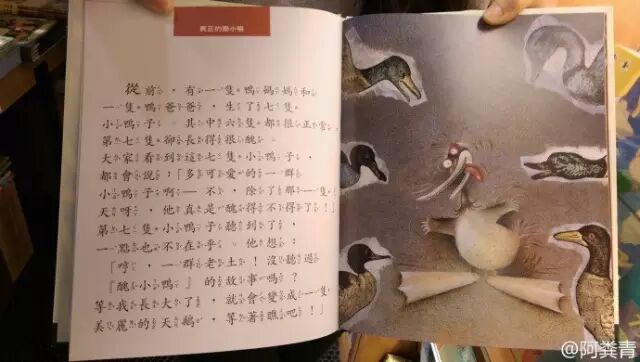 真正的醜小鴨
從前，有一隻鴨媽媽和
一隻鴨爸爸，生了七隻
小鴨子。其中六隻都很正常，
第七隻卻長得很醜。
大家看到這七隻小鴨子，
都會說：「多可愛的一群
小鴨子啊——不，除了那一隻！
天呀，他真是醜得不得了！」
第七隻小鴨子聽到了，
一點也不在乎。他想：
「哼，一群老土！沒聽過
『醜小鴨』的故事嗎？
等我長大了，就會變成一隻
美麗的天鵝，等著瞧吧！」
@阿粪青